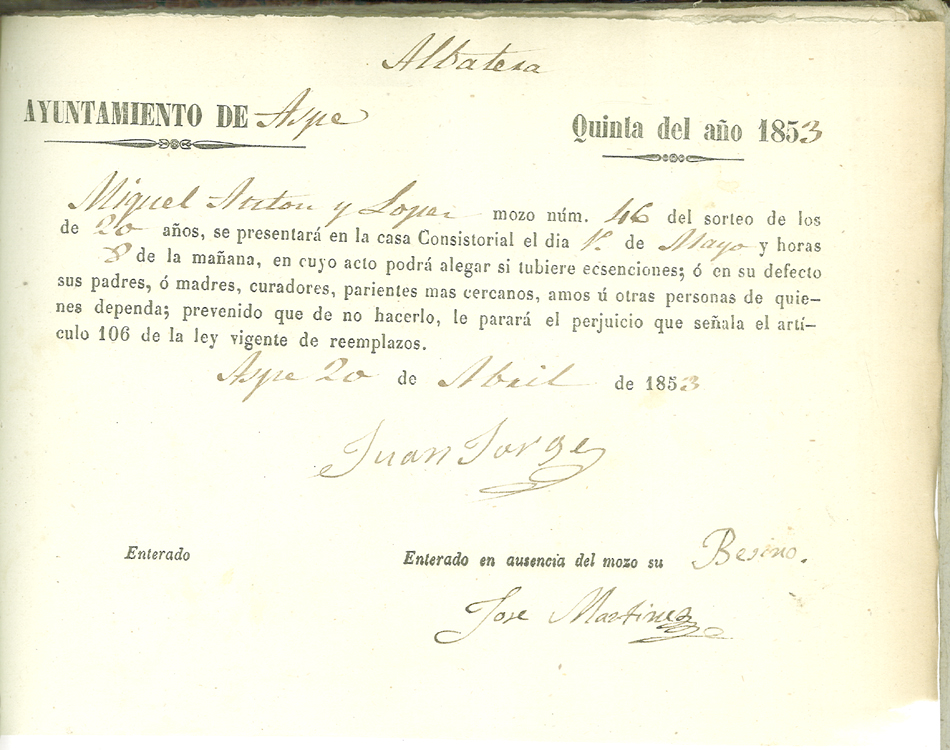 Albatera
AYUNTAMIENTO DE Aspe
Quinta del año 1853
Miguel Anton y Lopez mozo núm. 46 del sorteo de los
de 20 años, se presentará en la casa Consistorial el dia 1º de Mayo y horas
8 de la mañana, en cuyo acto podrá alegar si tubiere ecsenciones; ó en su defecto
sus padres, ó madres, curadores, parientes mas cercanos, amos ú otras personas de quie-
nes dependa; prevenido que de no hacerlo, le parará el perjuicio que señala el artí-
culo 106 de la ley vigente de reemplazos.
Aspe 20 de Abril de 1853
Juan Jorge
Enterado
Enterado en ausencia del mozo su Besino.
Jose Martinez